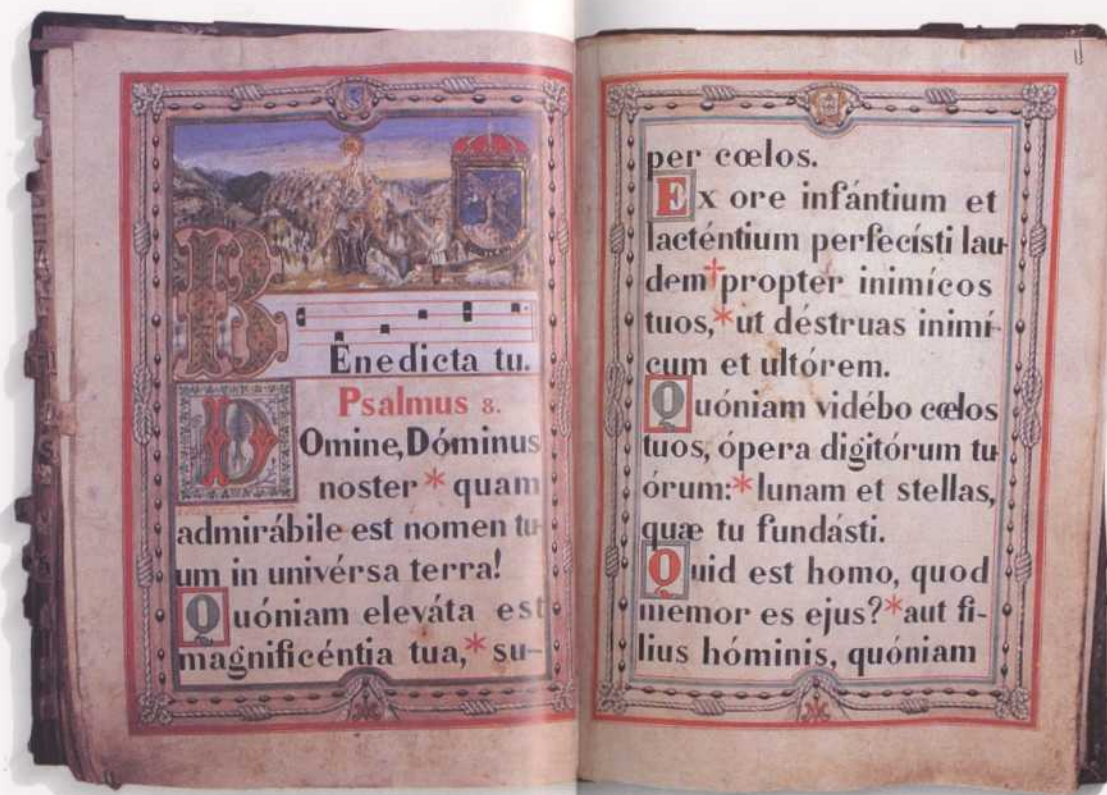 BEnedicta tu.
Psalmus 8.
DOmine, Dóminus
noster * quam
admirábile est nomen tu-
um in univérsa terra!
Quóniam eleváta est
magnificéntia tua, * su-
per cœlos.
Ex ore infántium et
lacténtium perfecísti lau-
dem † propter inimícos
tuos, * ut déstruas inimí-
cum et ultórem.
Quóniam vidébo cœlos
tuos, ópera digitórum tu-
órum: * lunam et stellas,
quæ tu fundásti.
Quid est homo, quod
memor es ejus? * aut fi-
lius hóminis, quóniam